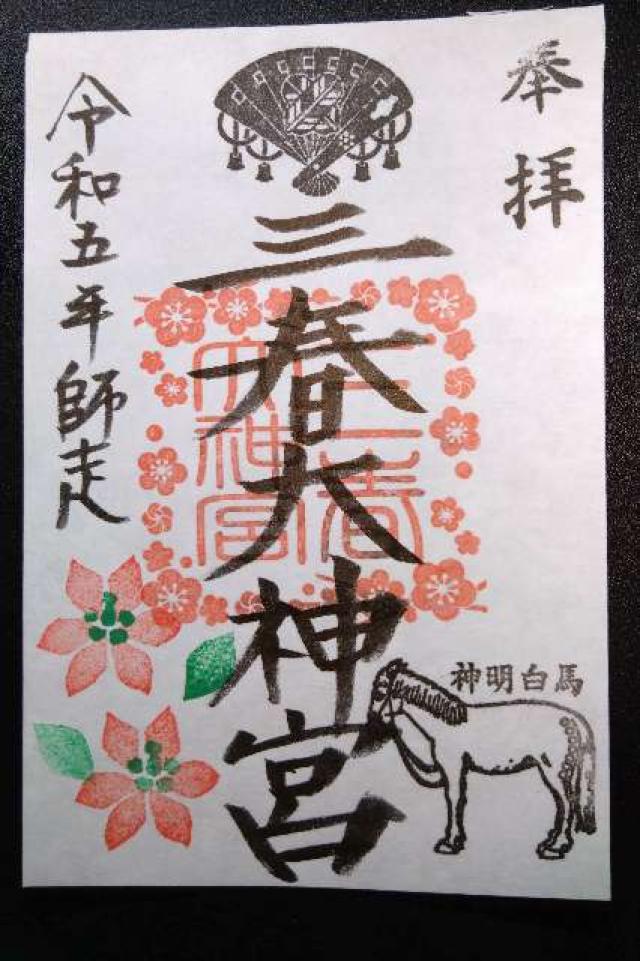 奉拝
三春大神宮
三春
大神宮
神明白馬
令和五年師走